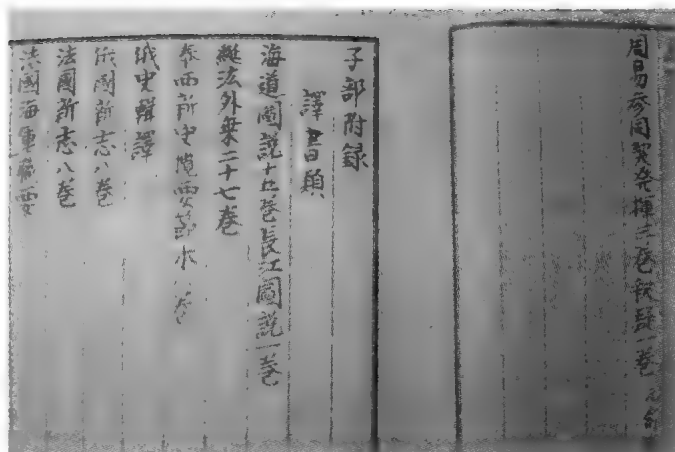 周易參同契發揮三卷釋疑一卷
子部附録
譯書類
海道圖說十五卷長江圖說一卷
縱法外乘二十七卷
泰西新史攬要節本八卷
俄史輯譯
俄國新志八卷
法國新志八卷
法國海軍職要